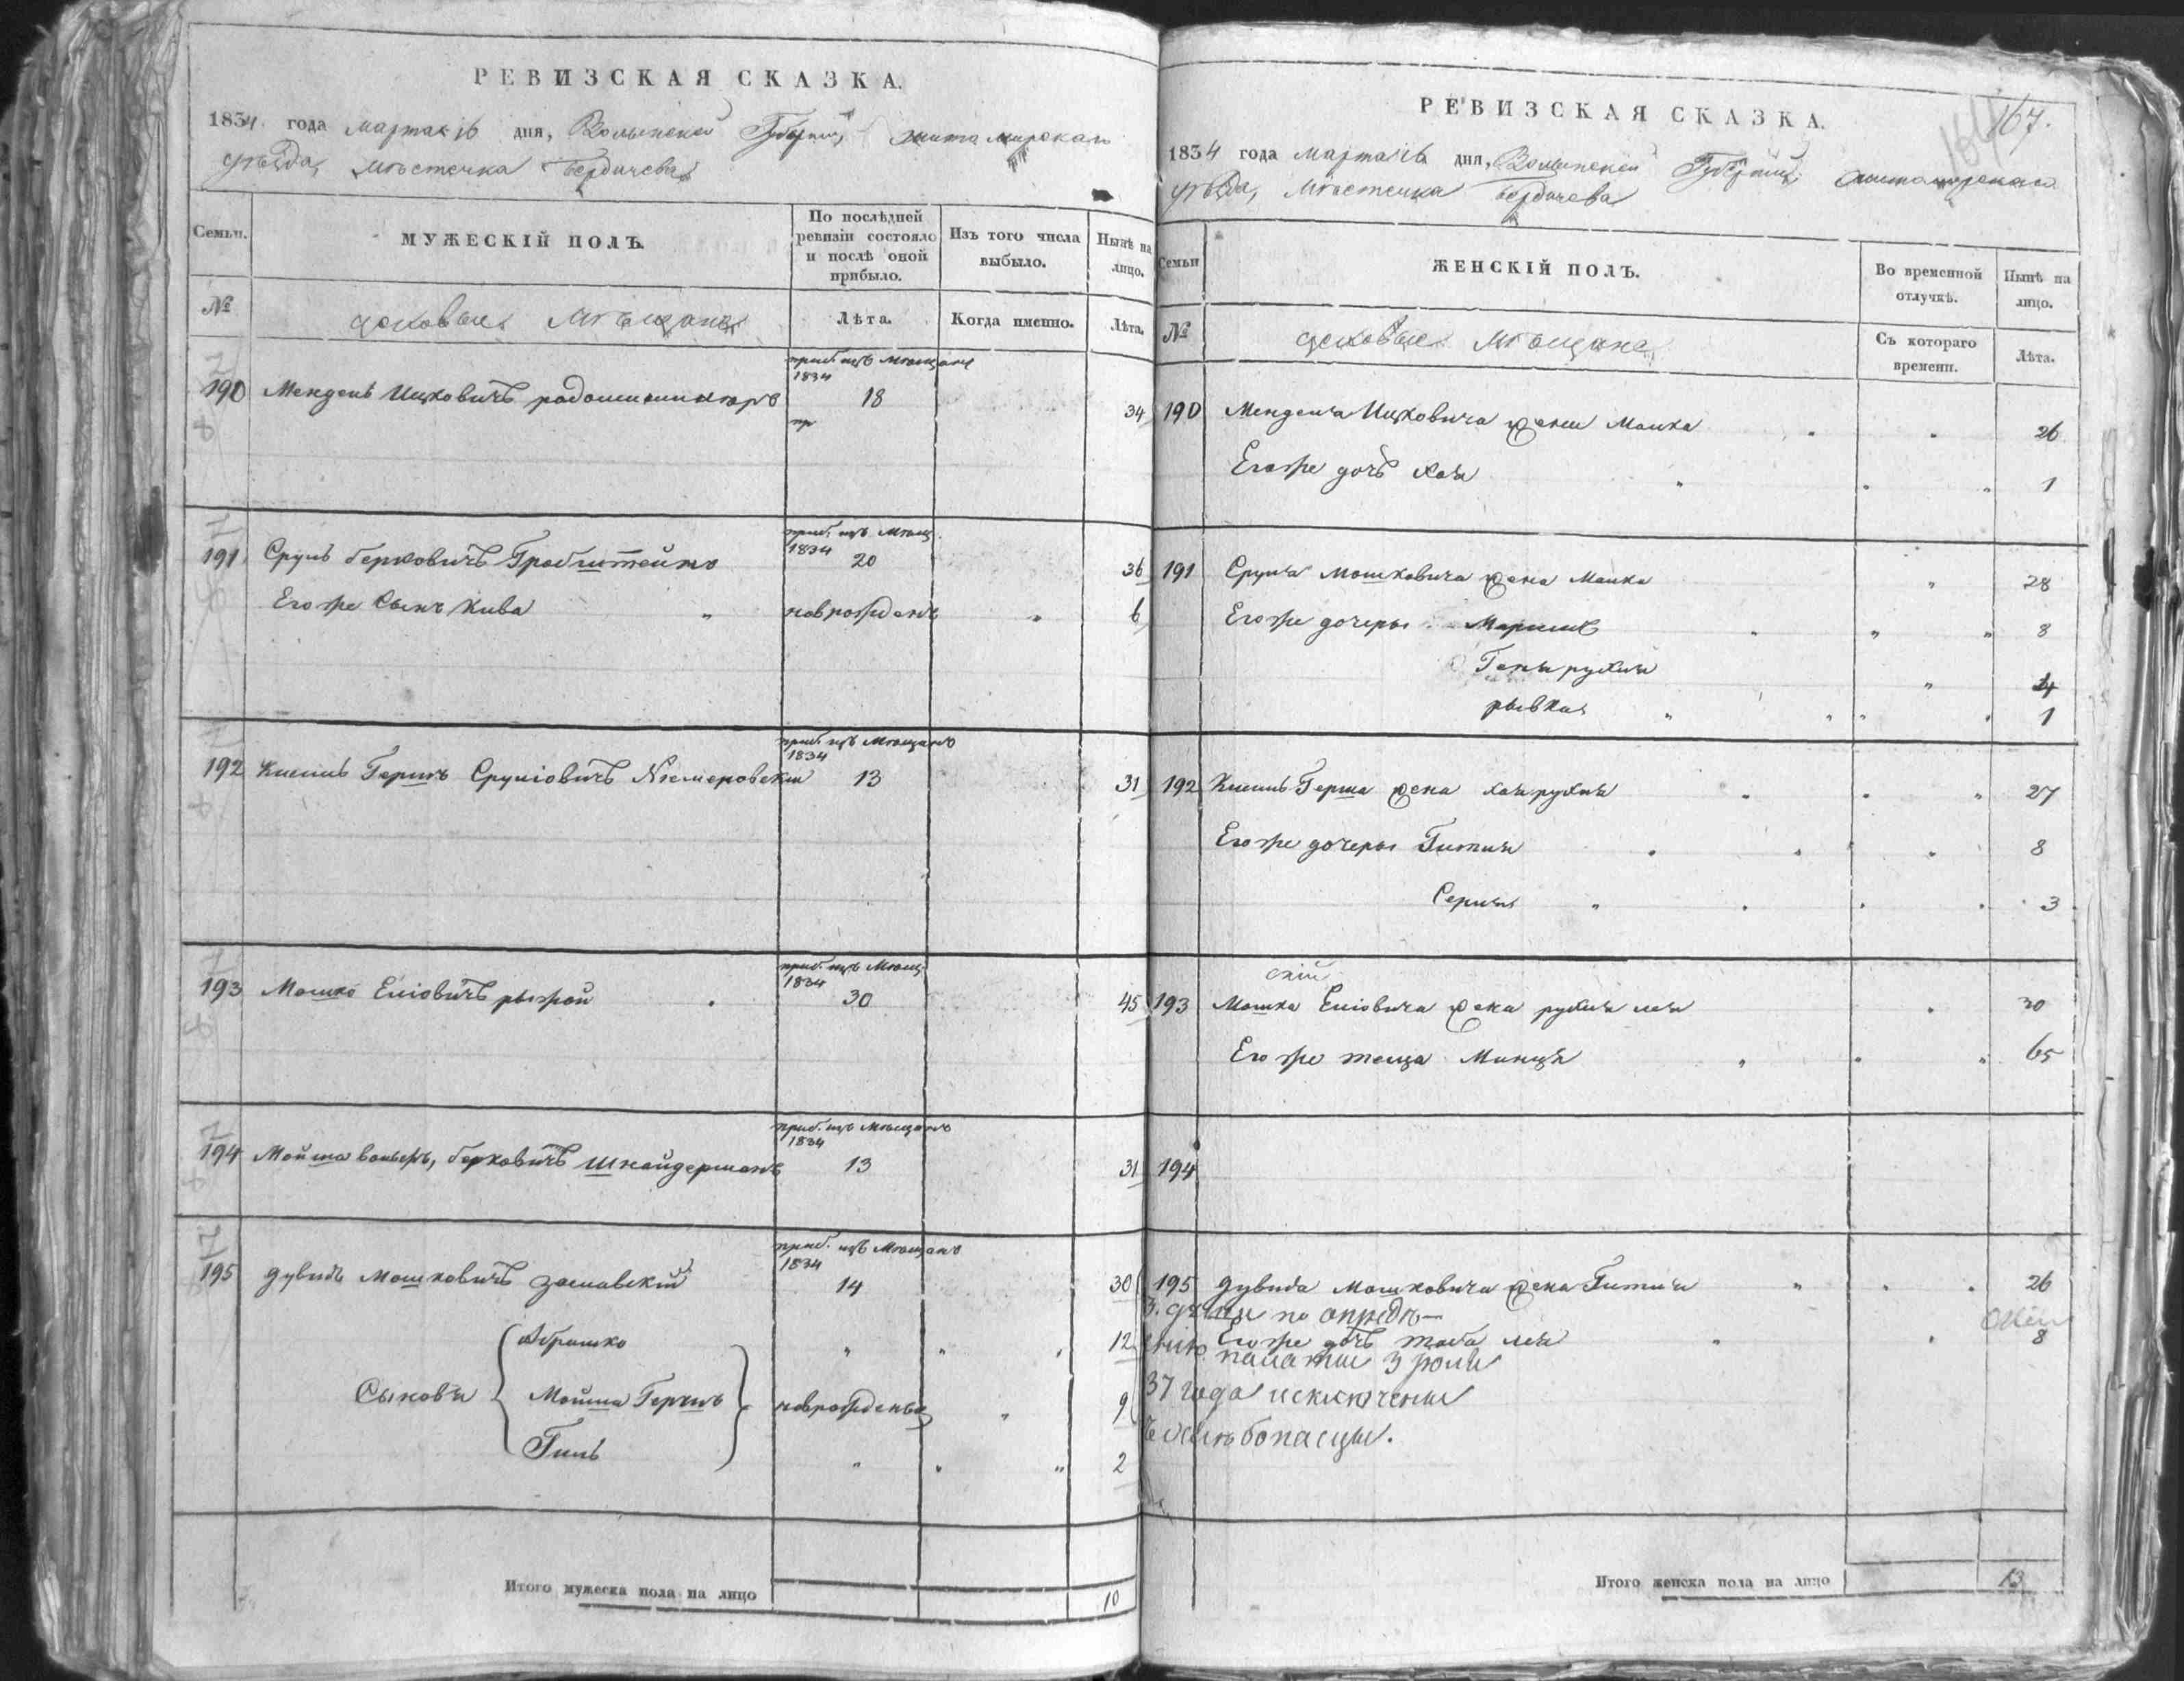 РЕВИЗСКАЯ СКАЗКА.
1834 года Марта 16 дня, Волынской Губерніи Житомирскаго
уѣзда, Мѣстечка Бердичева
Семьи.
МУЖЕСКІЙ ПОЛЪ.
По послѣдней ревизіи состояло и послѣ оной прибыло.
Изъ того числа выбыло.
Нынѣ на лицо.
№
цеховые Мѣщане
Лѣта.
Когда именно.
Лѣта.
приб. изъ Мѣщанъ
1834
190 Мендель Ицковичъ 18 34
приб. изъ Мѣщ.
1834
191 Сруль Берковичъ Гробштейнъ 20 36
Его же Сынъ Кива новрожденъ 6
приб. изъ Мѣщанъ
1834
192 Кисиль Гершъ Сруліовичъ Немеровскій 13 31
приб. изъ Мѣщ.
1834
193 Мошко Еліовичъ рыжой 30 45
приб. изъ Мѣщанъ
1834
194 Мойша вольфъ, Берковичъ Шнайдерманъ 13 31
приб. изъ Мѣщанъ
1834
195 Дувидъ Мошковичъ Заславскій 14 30
Абрашко 12
Сыновья Мойша Гершъ новрожденые 9
Гиль 2
Итого мужеска пола на лицо 10
167.
РЕВИЗСКАЯ СКАЗКА.
1834 года Марта 16 дня, Волынской Губерніи Житомирскаго
уѣзда, Мѣстечка Бердичева
Семьи
ЖЕНСКІЙ ПОЛЪ.
Во временной отлучкѣ.
Нынѣ на лицо.
№
цеховые Мѣщане
Съ котораго времени.
Лѣта.
190 Менделя Ицковича жена Малка 26
Его же дочь Хая 1
191 Сруля Мошковича жена Малка 28
Его же дочеры 8
Геня рухля 4
рывка 1
192 Кисиль Герша жена хая рухля 27
Его же дочеры Гитля 8
Серля 3
скій
193 Мошка Еліовича жена рухля лея 30
Его же теща Минця 65
194
195 Дувида Мошковича жена Гитля 26
3. души по опредѣ-
Его же дочь таба лея 8
ленію палаты 3 юля
37 года исключены
въ хлѣбопасцы.
Итого женска пола на лицо 13